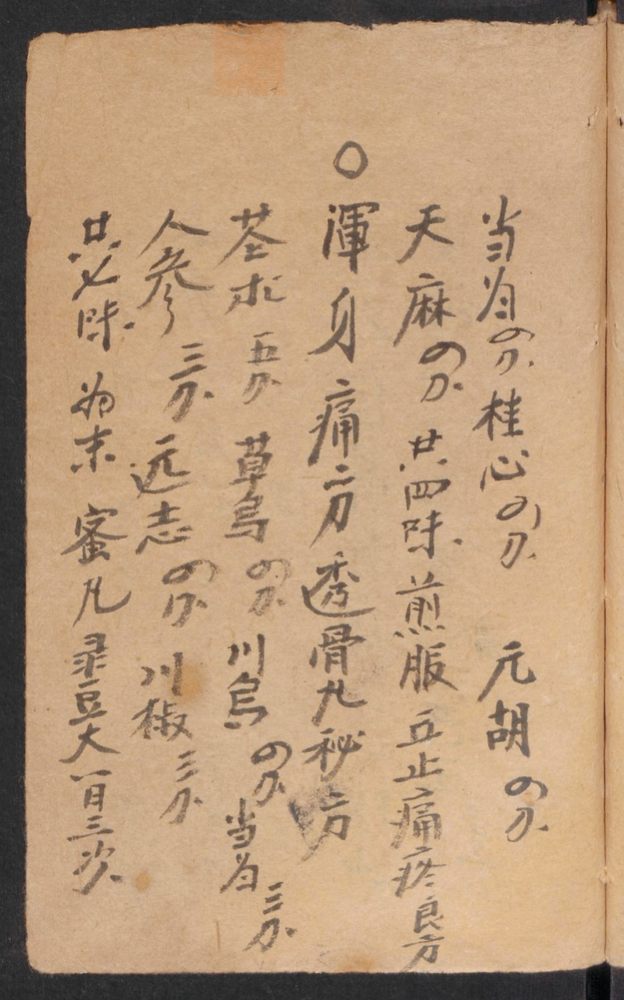 当归四分 桂心四分 元胡四分
天麻四分 共四味 煎服 立止痛疼良方
〇渾身痛方 透骨丸秘方
苍术五分 草烏四分 川烏四分 当归三分
人参三分 远志四分 川椒三分
共七味 为末 蜜丸 彔豆大 一日三次